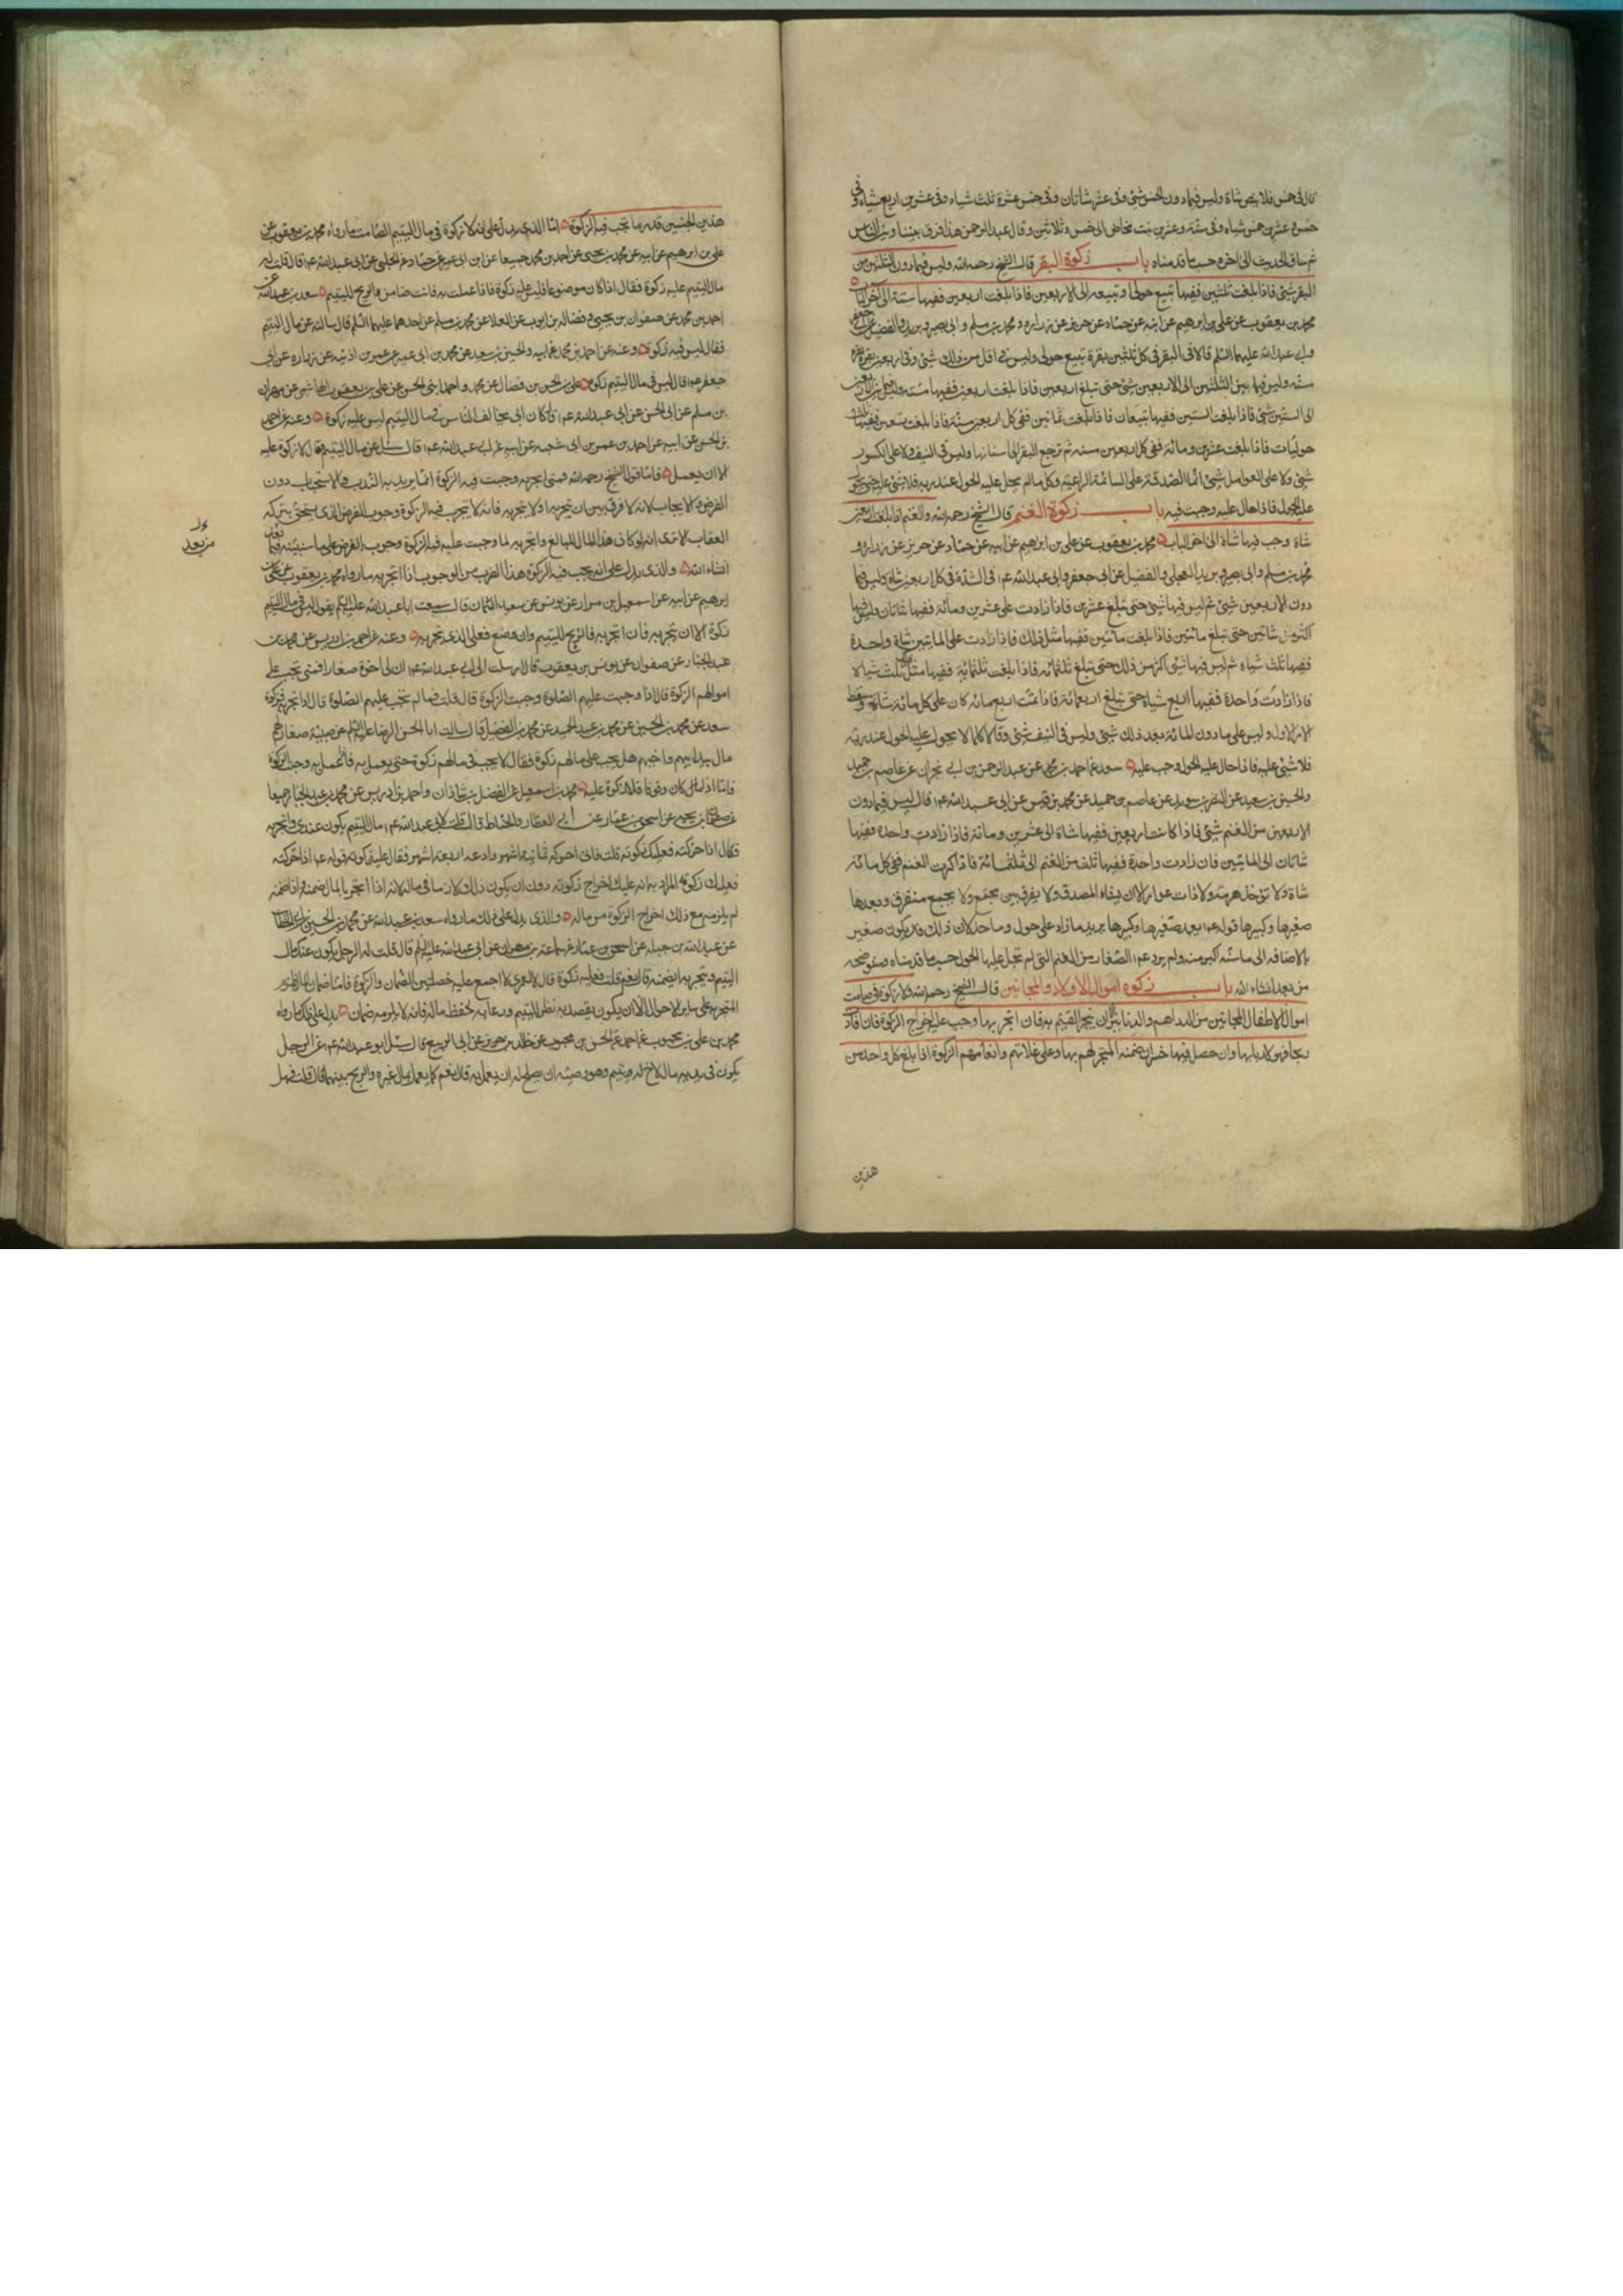 قال في خمس قلايص شاة وليس فيما دون الخمس شئ وفي عشر شاتان وفي خمس عشرة ثلث شياه وفي عشرين اربع شياه وفي
خمس وعشرين خمس شياه وفي ستة وعشرين بنت مخاض الى خمس وثلاثين وقال عبد الرحمن هذا فرق بيننا وبين الناس
ثم ساق الحديث الى اخره حسب ما قدمناه باب زكوة البقر قال الشيخ رحمه الله وليس فيما دون الثلثين من
البقر شئ فاذا بلغت ثلثين ففيها تبيع حولي او تبيعه الى الاربعين فاذا بلغت اربعين ففيها مسنة الى آخر الباب
محمد بن يعقوب عن علي بن ابرهيم عن ابيه عن حماد عن حريز عن زراره ومحمد بن مسلم وابي بصير وبريد والفضيل عن ابي جعفر
وابي عبد الله عليهما السلم قالا في البقر في كل ثلثين بقرة تبيع حولي وليس في اقل من ذلك شئ وفي اربعين بقرة بقرة
مسنه وليس فيما بين الثلثين الى الاربعين شئ حتى تبلغ اربعين فاذا بلغت اربعين ففيها مسنه وليس فيما بين الاربعين
الى الستين شئ فاذا بلغت الستين ففيها تبيعان فاذا بلغت ثمانين ففي كل اربعين مسنة فاذا بلغت تسعين ففيها ثلث
حوليات فاذا بلغت عشرين ومائة ففي كل اربعين مسنه ثم ترجع البقر الى اسنانها وليس في النيف ولا على الكسور
شئ ولا على العوامل شئ انما الصدقة على السائمة الراعية وكل ما لم يحل عليه الحول عند ربه فلا شئ عليه حتى يحول
عليه الحول فاذا حال عليه وجبت فيه باب زكوة الغنم قال الشيخ رحمه الله والغنم اذا بلغت اربعين
شاة وجب فيها شاة الى اخر الباب محمد بن يعقوب عن علي بن ابرهيم عن ابيه عن حماد عن حريز عن زراره و
محمد بن مسلم وابي بصير وبريد العجلي والفضيل عن ابي جعفر وابي عبد الله عم في الشاة في كل اربعين شاة وليس فيما
دون الاربعين شئ ثم ليس فيها شئ حتى تبلغ عشرين فاذا زادت على عشرين ومائة ففيها شاتان وليس فيها
اكثر من شاتين حتى تبلغ مائتين فاذا بلغت مائتين ففيها مثل ذلك فاذا زادت على المائتين شاة واحدة
ففيها ثلث شياه ثم ليس فيها شئ اكثر من ذلك حتى تبلغ ثلثمائه فاذا بلغت ثلثمائة ففيها مثل ذلك ثلث شياه
فاذا زادت واحدة ففيها اربع شياه حتى تبلغ اربعمائة فاذا تمت اربعمائه كان على كل مائة شاة وسقط
الامر الاول وليس على ما دون المائة بعد ذلك شئ وليس في النيف شئ وقالا كلما لا يحول عليه الحول عند ربه
فلا شئ عليه فاذا حال عليه الحول وجب عليه سعد عن احمد بن محمد عن عبد الرحمن بن ابي نجران عن عاصم بن حميد
والحسين بن سعيد عن النضر بن سويد عن عاصم بن حميد عن محمد بن قيس عن ابي عبد الله عم قال ليس فيما دون
الاربعين من الغنم شئ فاذا كانت اربعين ففيها شاة الى عشرين ومائة فاذا زادت واحدة ففيها
شاتان الى المائتين فان زادت واحدة ففيها ثلث من الغنم الى ثلثمائة فاذا كثرت الغنم ففي كل مائة
شاة ولا تؤخذ هرمة ولا ذات عوار الا ان يشاء المصدق ولا يفرق بين مجتمع ولا يجمع متفرق ويعد
صغيرها وكبيرها قوله عم يعد صغيرها وكبيرها يريد ما زاد على حول وما حد كان ذلك قد يكون صغير
بالاضافه الى ما سنه اكبر منه ولم يرد عم الصغار من الغنم التي لم تحل عليها الحول حسب ما قدمناه وسنوضحه
من بعد انشاء الله باب زكوه اموال الاولاد والمجانين قال الشيخ رحمه الله ولا زكوة في صامت
اموال الاطفال والمجانين من الدراهم والدنانير الا ان يتجر القيم به فان اتجر بها وجب عليه اخراج الزكوة فان افاد
ربحا فهو لاربابها وان حصل فيها خسران ضمنه المتجر لهم بها وعلى غلاتهم وانعامهم الزكوة اذا بلغ كل واحد من
هذين
هذين الجنسين قدر ما تجب فيه الزكوة اما الذي يدل على انه لا زكوة في مال اليتيم الصامت ما رواه محمد بن يعقوب عن
علي بن ابرهيم عن ابيه عن محمد بن يحيى عن احمد بن محمد جميعا عن ابن ابي عمير عن حماد عن الحلبي عن ابي عبد الله عم قال قلت له
مال اليتيم عليه زكوة فقال اذا كان موضوعا فليس عليه زكوة فاذا عملت به فانت ضامن والربح لليتيم سعد بن عبد الله عن
احمد بن محمد عن صفوان بن يحيى وفضاله بن ايوب عن العلا عن محمد بن مسلم عن احدهما عليهما السلم قال سالته عن مال اليتيم
فقال ليس فيه زكوة وعنه عن احمد بن محمد عن ابيه والحسين بن سعيد عن محمد بن ابي عمير عن عمر بن اذينه عن زراره عن ابي
جعفر عم قال ليس في مال اليتيم زكوة علي بن الحسن بن فضال عن محمد واحمد ابني الحسن عن علي بن يعقوب الهاشمي عن مروان
بن مسلم عن ابي الحسن عن ابي عبد الله عم قال كان ابي يخالف الناس في مال اليتيم ليس عليه زكوة وعنه عن احمد
بن الحسن عن ابيه عن احمد بن عمر بن ابي شعبه عن ابيه عن ابي عبد الله عم قال سئل عن مال اليتيم فقال لا زكوة عليه
الا ان يعمل فاما قول الشيخ رحمه الله فمتى اتجر به وجبت فيه الزكوة انما يريد به الندب والاستحباب دون
الفرض والايجاب لانه لا فرق بين ان يتجر به او لا يتجر به فانه لا تجب فيه الزكوة وجوب الفرض الذي يستحق بتركه
العقاب الا ترى انه لو كان هذا المال للبالغ واتجر به لما وجبت عليه فيه الزكوة وجوب الفرض على ما سنبينه فيما بعد
انشاء الله والذي يدل على انه يجب فيه الزكوة هذا الضرب من الوجوب اذا اتجر به ما رواه محمد بن يعقوب عن علي بن
ابرهيم عن ابيه عن اسمعيل بن مرار عن يونس عن سعيد السمان قال سمعت ابا عبد الله عليه السلم يقول ليس في مال اليتيم
زكوة الا ان يتجر به فان اتجر به فالربح لليتيم وان وضع فعلى الذي يتجر به وعنه عن احمد بن ادريس عن محمد بن
عبد الجبار عن صفوان عن يونس بن يعقوب قال ارسلت الى ابي عبد الله عم ان لي اخوة صغارا فمتى تجب على
اموالهم الزكوة قال اذا وجبت عليهم الصلوة وجبت الزكوة قال قلت فما لم تجب عليهم الصلوة قال اذا اتجر به فزكوه
سعد عن محمد بن الحسين عن محمد بن عبد الحميد عن محمد بن الفضيل قال سالت ابا الحسن الرضا عليه السلم عن صبية صغار لهم
مال بيد ابيهم واخيهم هل يجب على مالهم زكوة فقال لا يجب في مالهم زكوة حتى يعمل به فاذا عمل به وجبت الزكوة
فاما اذا كان موقوفا فلا زكوة عليه محمد بن اسمعيل عن الفضل بن شاذان واحمد بن ادريس عن محمد بن عبد الجبار جميعا
عن صفوان بن يحيى عن اسحق بن عمار عن ابي العطارد الحناط قال قلت لابي عبد الله عم مال اليتيم يكون عندي فاتجر به
فقال اذا حركته فعليك زكوته قلت فاني احركه ثمانية اشهر وادعه اربعة اشهر فقال عليك زكوته قوله عم اذا حركته
فعليك زكوته المراد به انه عليك اخراج زكوته دون ان يكون ذلك لازما في ماله لانه اذا اتجر بالمال ضمنه واذا ضمنه
لم يلزمه مع ذلك اخراج الزكوة من ماله والذي يدل على ذلك ما رواه سعد بن عبد الله عن محمد بن الحسين بن ابي الخطاب
عن عبد الله بن جبله عن اسحق بن عمار عن سماعة بن مهران عن ابي عبد الله عليه السلم قال قلت له الرجل يكون عنده مال
اليتيم ويتجر به ايضمنه قال نعم قلت فعليه زكوة قال لا لعمري لا اجمع عليه خصلتين الضمان والزكوة فاما ضمان المال فيلزم
المتجر به على ساير الاحوال الا ان يكون يقصد به نظر اليتيم ورعايه لحفظ ماله فانه لا يلزمه ضمان يدل على ذلك ما رواه
محمد بن علي بن محبوب عن احمد عن الحسن بن محبوب عن خالد بن جرير عن ابي الربيع قال سئل ابو عبد الله عم عن الرجل
يكون في يديه مال لاخ له يتيم وهو وصيه ان يصلح له ان يعمل به قال نعم كما يعمل بمال غيره والربح بينهما قال قلت فهل